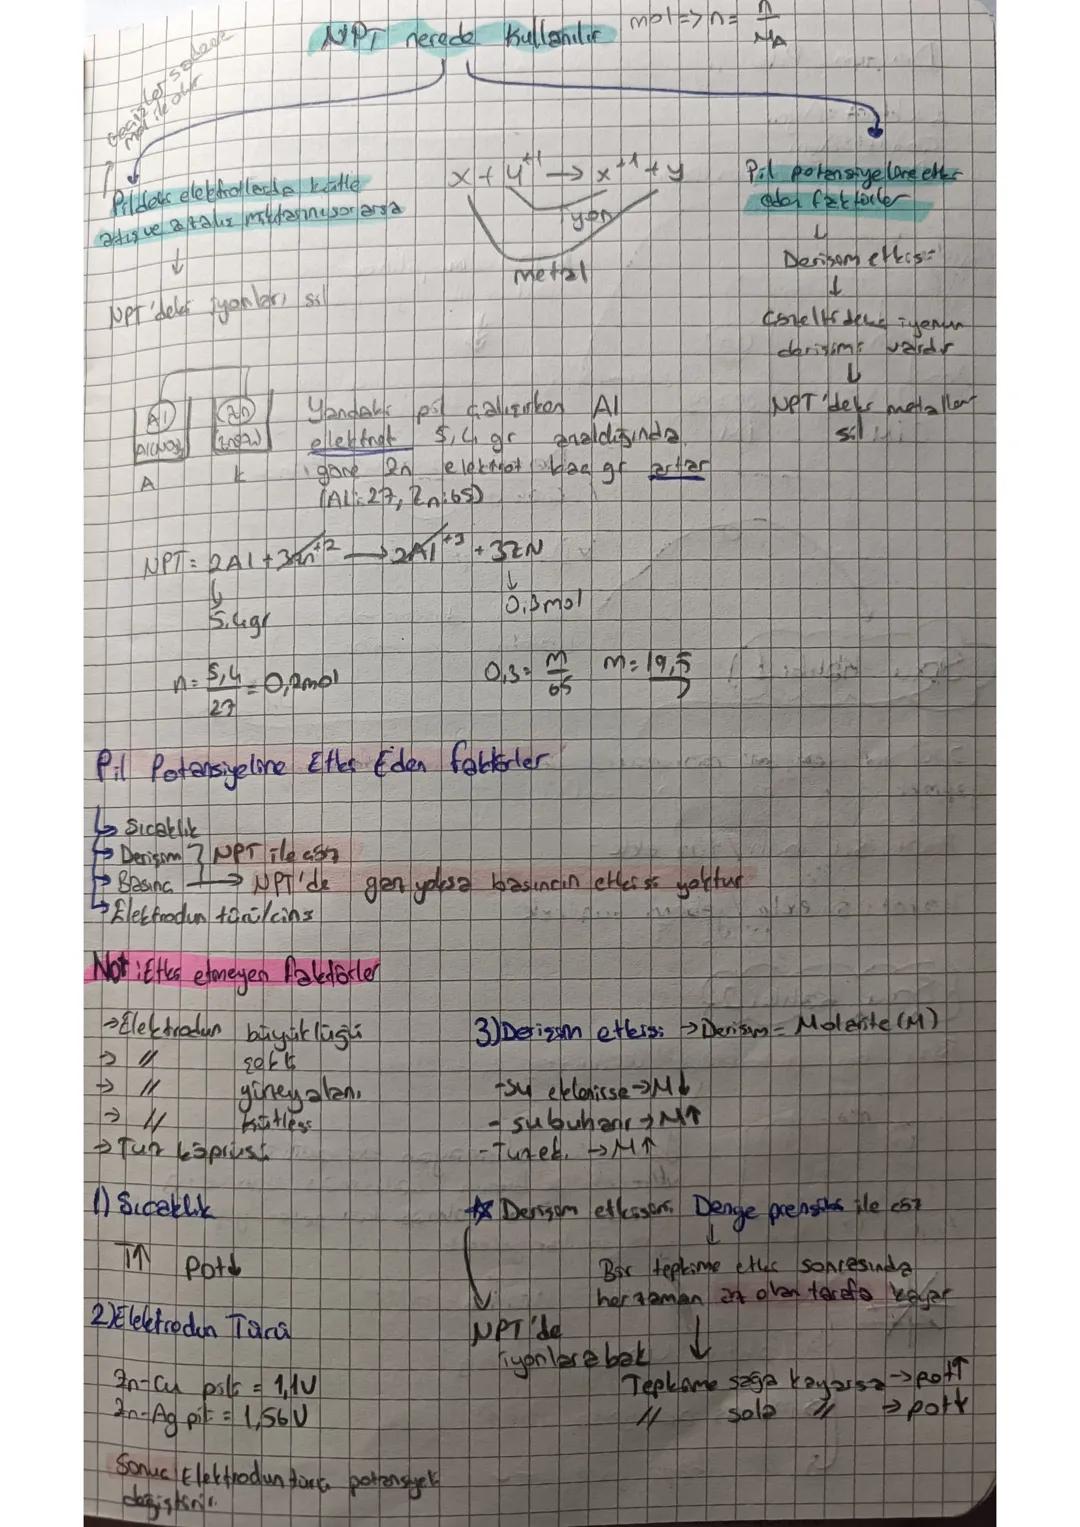 NPT nerede Kullanılır
mol => n = n/NA
Geçişler sadece
mol ile olur
Pildeki elektrollerde kütle
artış ve azalış miktarını sorarsa
↓
NPT'deki iyonları sil
x + y⁺¹ → x⁺¹ + y
iyon
metal
Pil potansiyeline etki
eden faktörler
↓
Derişim etkisi
↓
Çözeltideki iyonun
derişimi vardır
↓
NPT'deki metaller
sil
Al Zn
Al(NO3)
A K
Yandaki pil çalışırken Al
elektrot 5,4 gr azaldığında
göre Zn elektrot kaç gr artar
(Al:27, Zn:65)
NPT = 2Al + 3Zn⁺² → 2Al⁺³ + 3ZN
↓ ↓
5.4gr 0,3mol
n = 5,4/27 = 0,2mol 0,3 = m/65 m = 19,5
Pil Potansiyeline Etki Eden faktörler
→ Sıcaklık
→ Derişim } NPT ile çöz
→ Basınç → NPT'de gaz yoksa basıncın etkisi yoktur
→ Elektrodun türü/cinsi
Not: Etki etmeyen faktörler
→ Elektrodun büyüklüğü
→ // şekli
→ // yüzey alanı
→ // kütlesi
→ Tuz köprüsü
3) Derişim etkisi → Derişim = Molarite (M)
- su eklenirse → M↓
- su buharı → M↑
- Tuz ek. → M↑
1) Sıcaklık
T↑ Pot↓
2) Elektrodun Türü
Zn-Cu pili = 1,1V
Zn-Ag pil = 1,56V
Sonuç Elektrodun türü potansiyeli
değiştirir.
☆ Derişim etkisini Denge prensibi ile çöz
↓
Bir tepkime etki sonrasında
her zaman az olan tarafa kayar
NPT'de
iyonlara bak
↓
Tepkime sağa kayarsa → pot↑
// sola // → pot↓